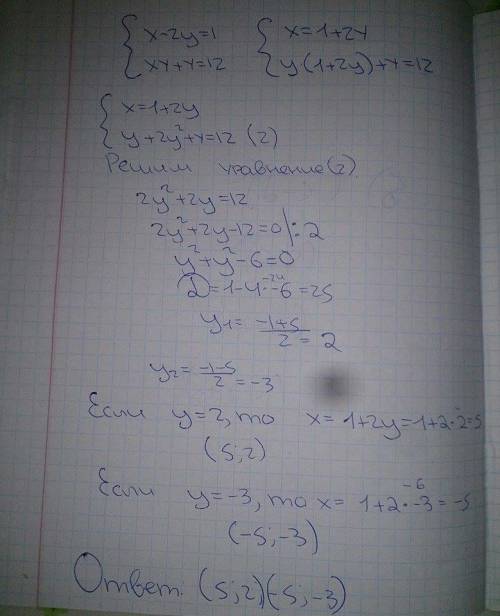 { x-2y=1 { x=1+2y
{ xy+y=12 { y(1+2y)+y=12
{ x=1+2y
{ y+2y²+y=12 (2)
Решим уравнение(2)
2y²+2y=12
2y²+2y-12=0 |:2
y²+y²-6=0
D=1-4·-6=25
-24
y₁= -1+5/2 = 2
y₂= -1-5/2 = -3
Если y=2, то x=1+2y=1+2·2=5
(5;2)
Если y=-3, то x= 1+2·-3=-5
-6
(-5;-3)
Ответ: (5;2)(-5;-3)